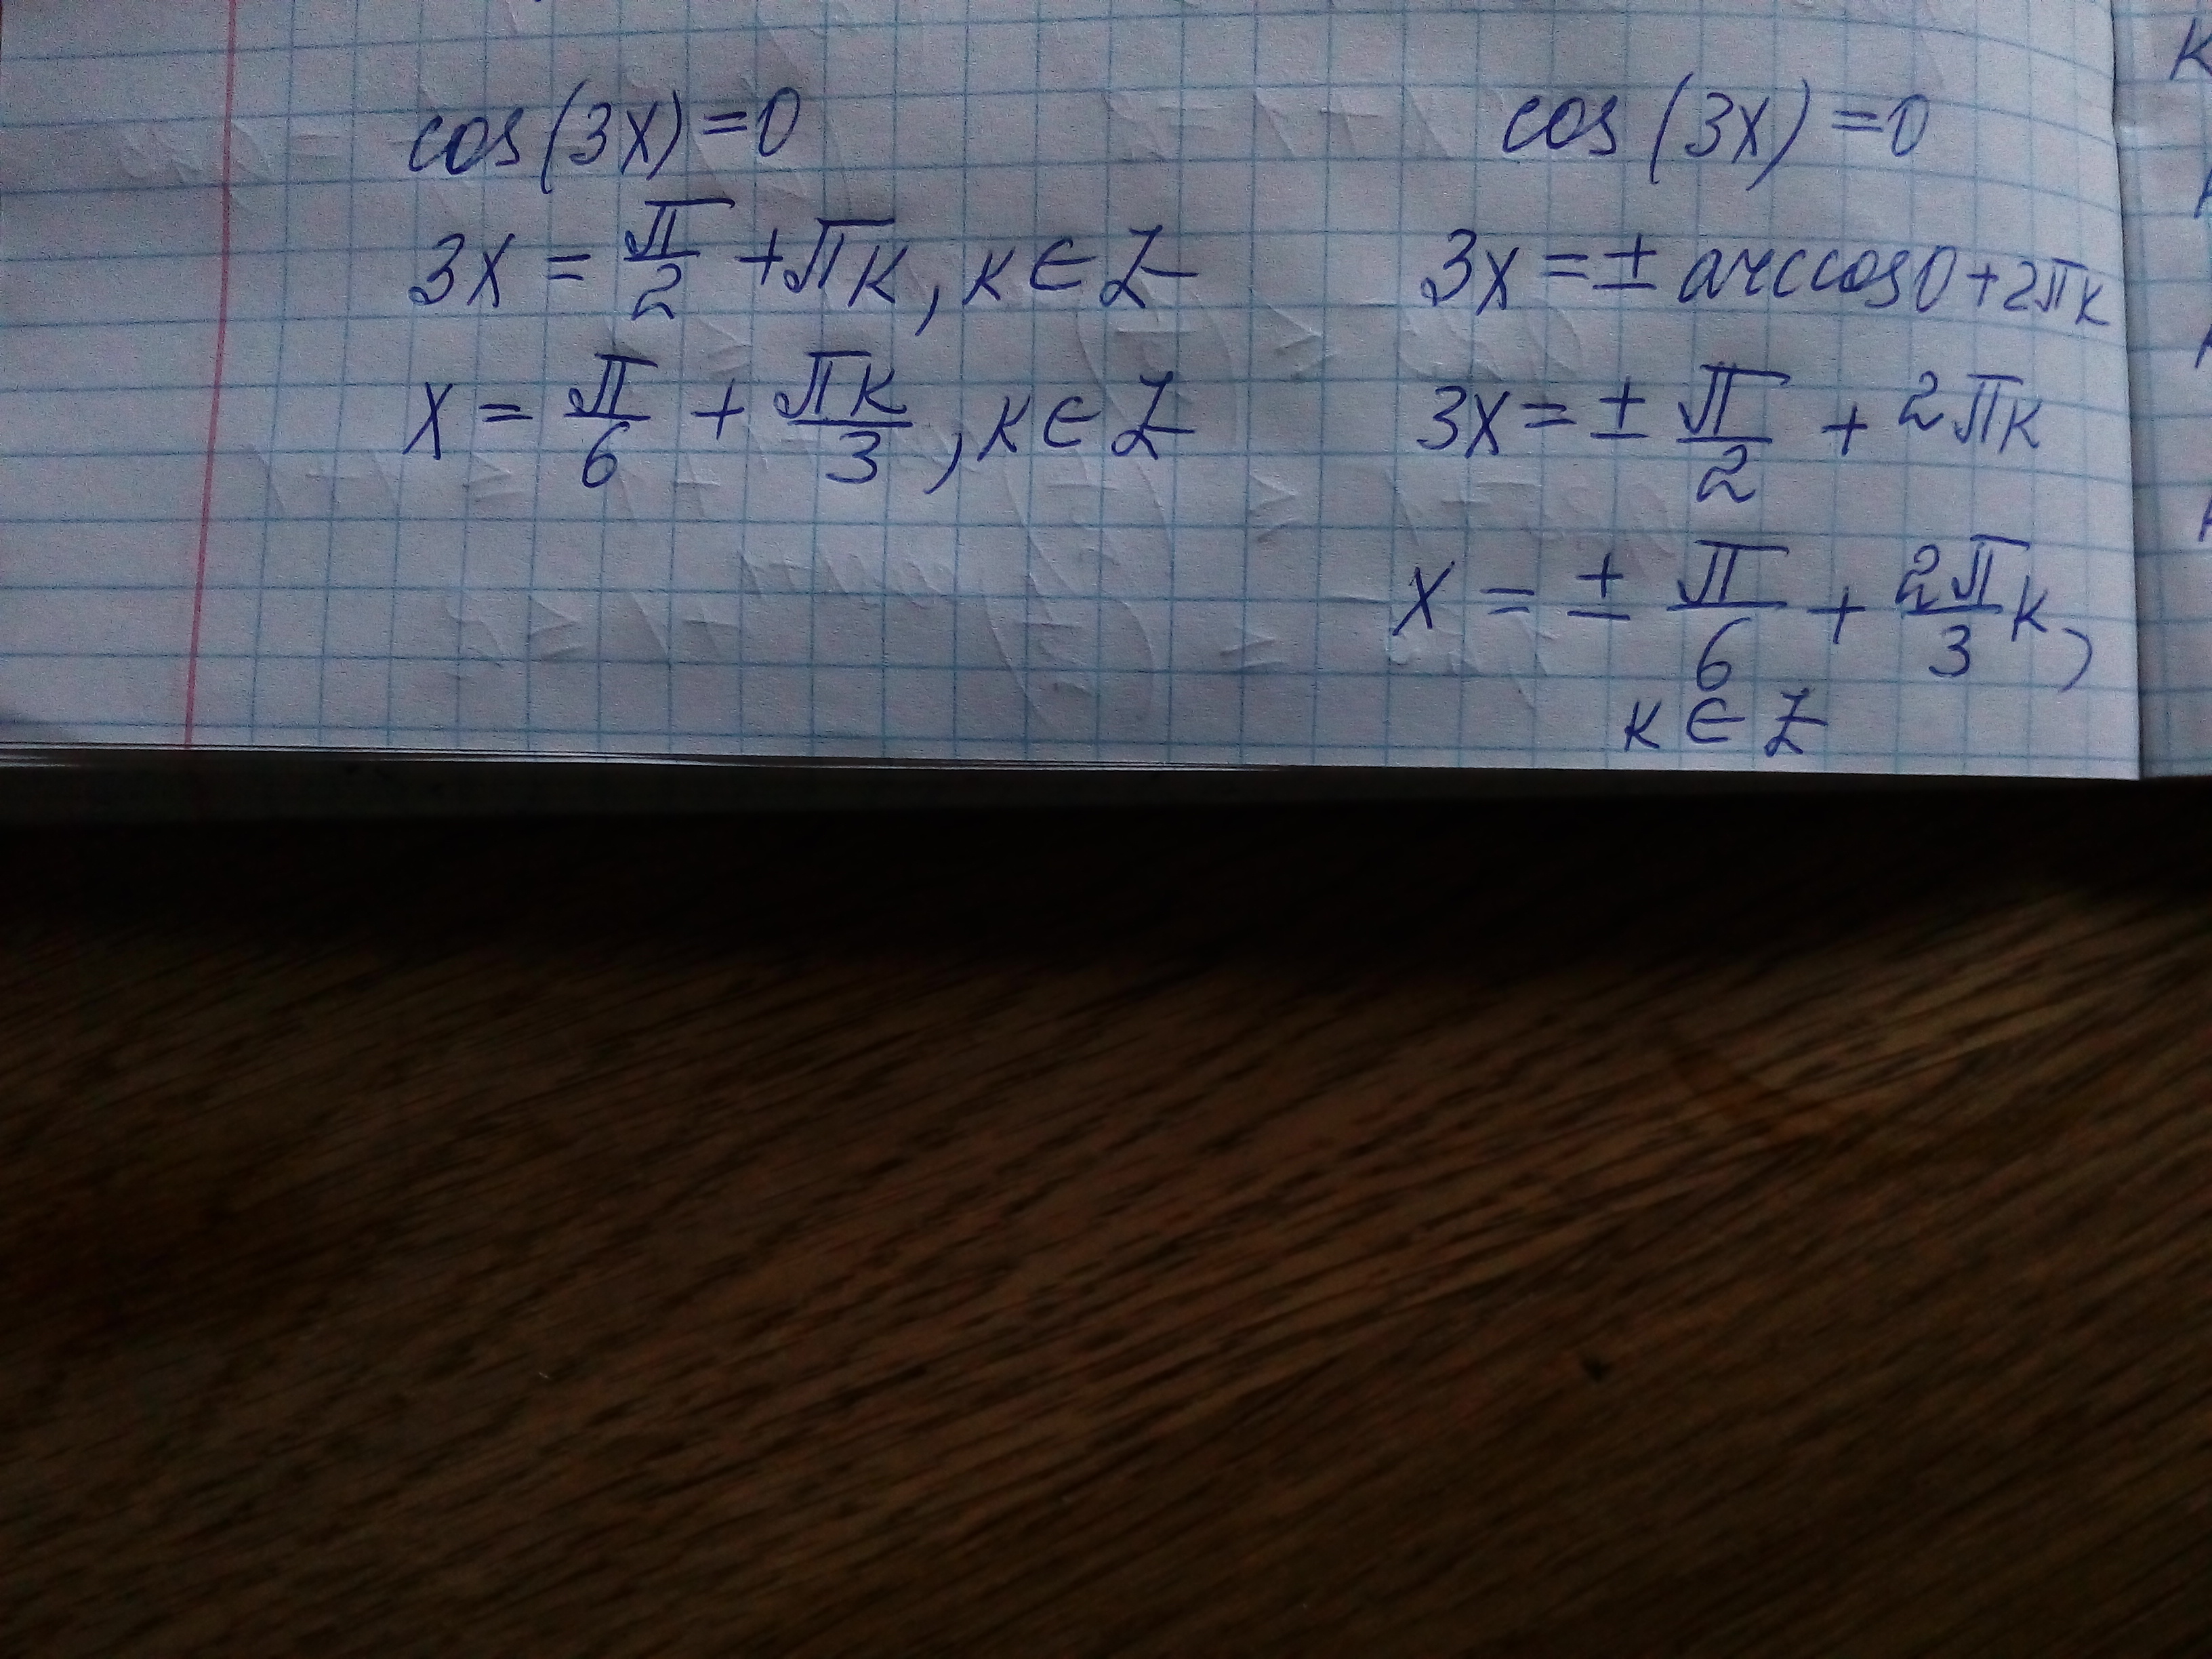 cos(3x)=0
3x = π/2 + πk, k ∈ Z
x = π/6 + πk/3, k ∈ Z
cos(3x)=0
3x = ± arccos0 + 2πk
3x = ± π/2 + 2πk
x = ± π/6 + 2π/3 k,
k ∈ Z